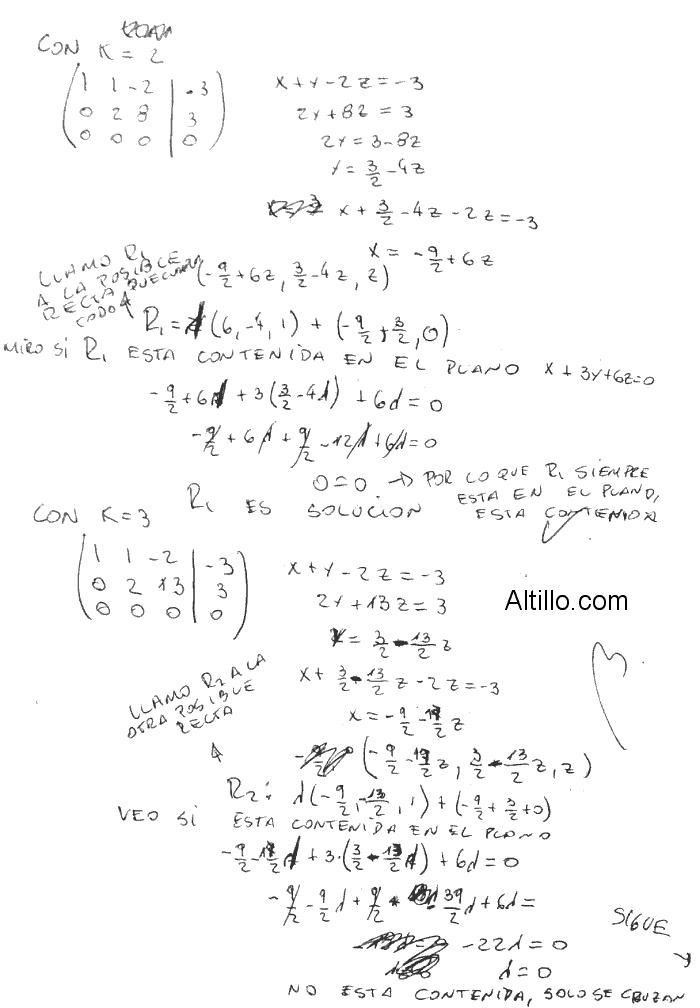 CON K = 2
1 1 -2 | -3
0 2 8 | 3
0 0 0 | 0
x + y - 2z = -3
2y + 8z = 3
2y = 3 - 8z
y = 3/2 - 4z
x + 3/2 - 4z - 2z = -3
x = -9/2 + 6z
LLAMO R1
A LA POSIBLE
RECTA QUE CUMPLA
TODO
(-9/2 + 6z, 3/2 - 4z, z)
R1 = λ(6, -4, 1) + (-9/2 + 3/2, 0)
MIRO SI R1 ESTA CONTENIDA EN EL PLANO x + 3y + 6z = 0
-9/2 + 6λ + 3(3/2 - 4λ) + 6λ = 0
-9/2 + 6λ + 9/2 - 12λ + 6λ = 0
0 = 0 → POR LO QUE R1 SIEMPRE
ESTA EN EL PLANO,
ESTA CONTENIDA
R1 ES SOLUCION
CON K = 3
1 1 -2 | -3
0 2 13 | 3
0 0 0 | 0
x + y - 2z = -3
2y + 13z = 3
y = 3/2 - 13/2 z
x + 3/2 - 13/2 z - 2z = -3
Altillo.com
LLAMO R2 A LA
OTRA POSIBLE
RECTA
x = -9/2 - z
(-9/2 - z, 3/2 - 13/2 z, z)
R2: λ(-9/2, -13/2, 1) + (-9/2 + 3/2 + 0)
VEO SI ESTA CONTENIDA EN EL PLANO
-9/2 - λ + 3·(3/2 - 13/2 λ) + 6λ = 0
-9/2 - 9/2 λ + 9/2 - 39/2 λ + 6λ =
-22λ = 0
λ = 0
SIGUE
NO ESTA CONTENIDA, SOLO SE CRUZAN